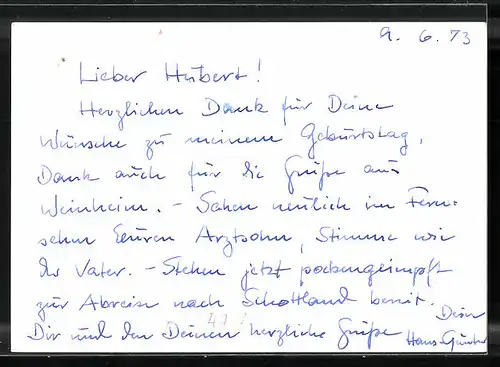 9. 6. 73
Lieber Hubert!
Herzlichen Dank für Deine
Wünsche zu meinem Geburtstag,
Dank auch für die Grüße aus
Weinheim. – Sahen neulich im Fern-
sehen Euren Arztsohn, Stimme wie
der Vater. – Stehen jetzt pockengeimpft
zur Abreise nach Schottland bereit.
Dir und den Deinen herzliche Grüße
Dein
Hans-Günther